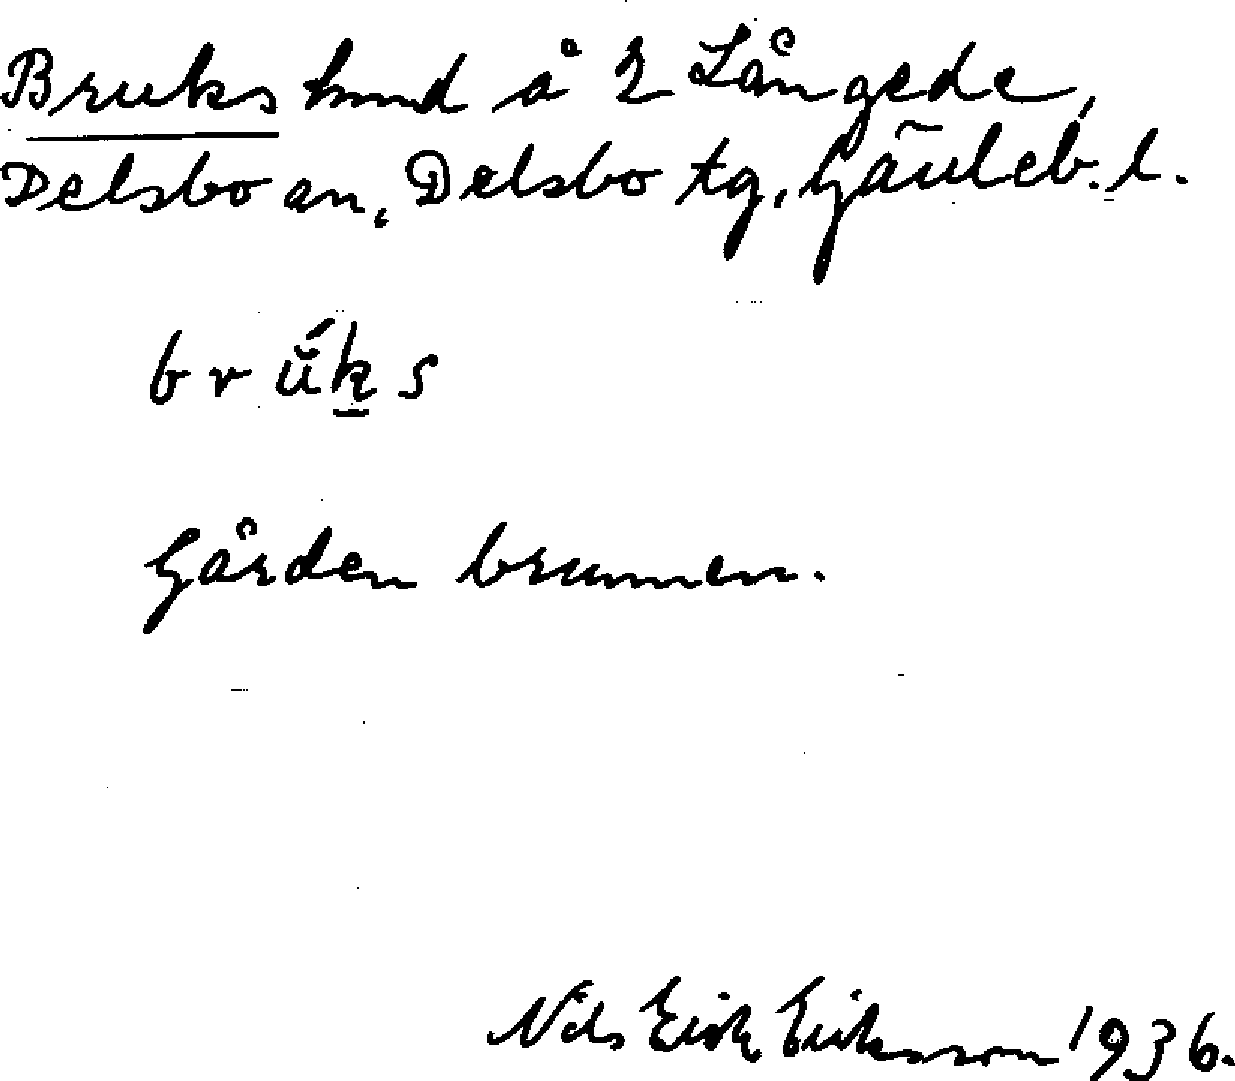 Bruks hmd å 2 Långede,
Delsbo sn, Delsbo tg, Gävleb. l.
brŭ́ks
Gården brunnen.
Nils Erik Eriksson 1936.